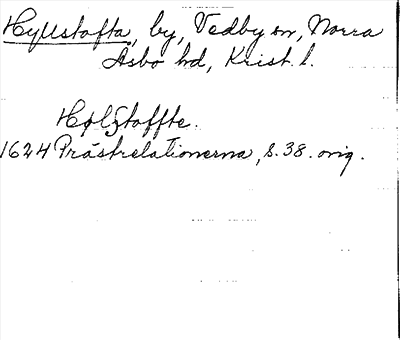 Hyllstofta, by, Vedby sn, Norra
Åsbo hd, Krist. l.
Hølsstoffte.
1624 Prästrelationerna, s. 38. orig.